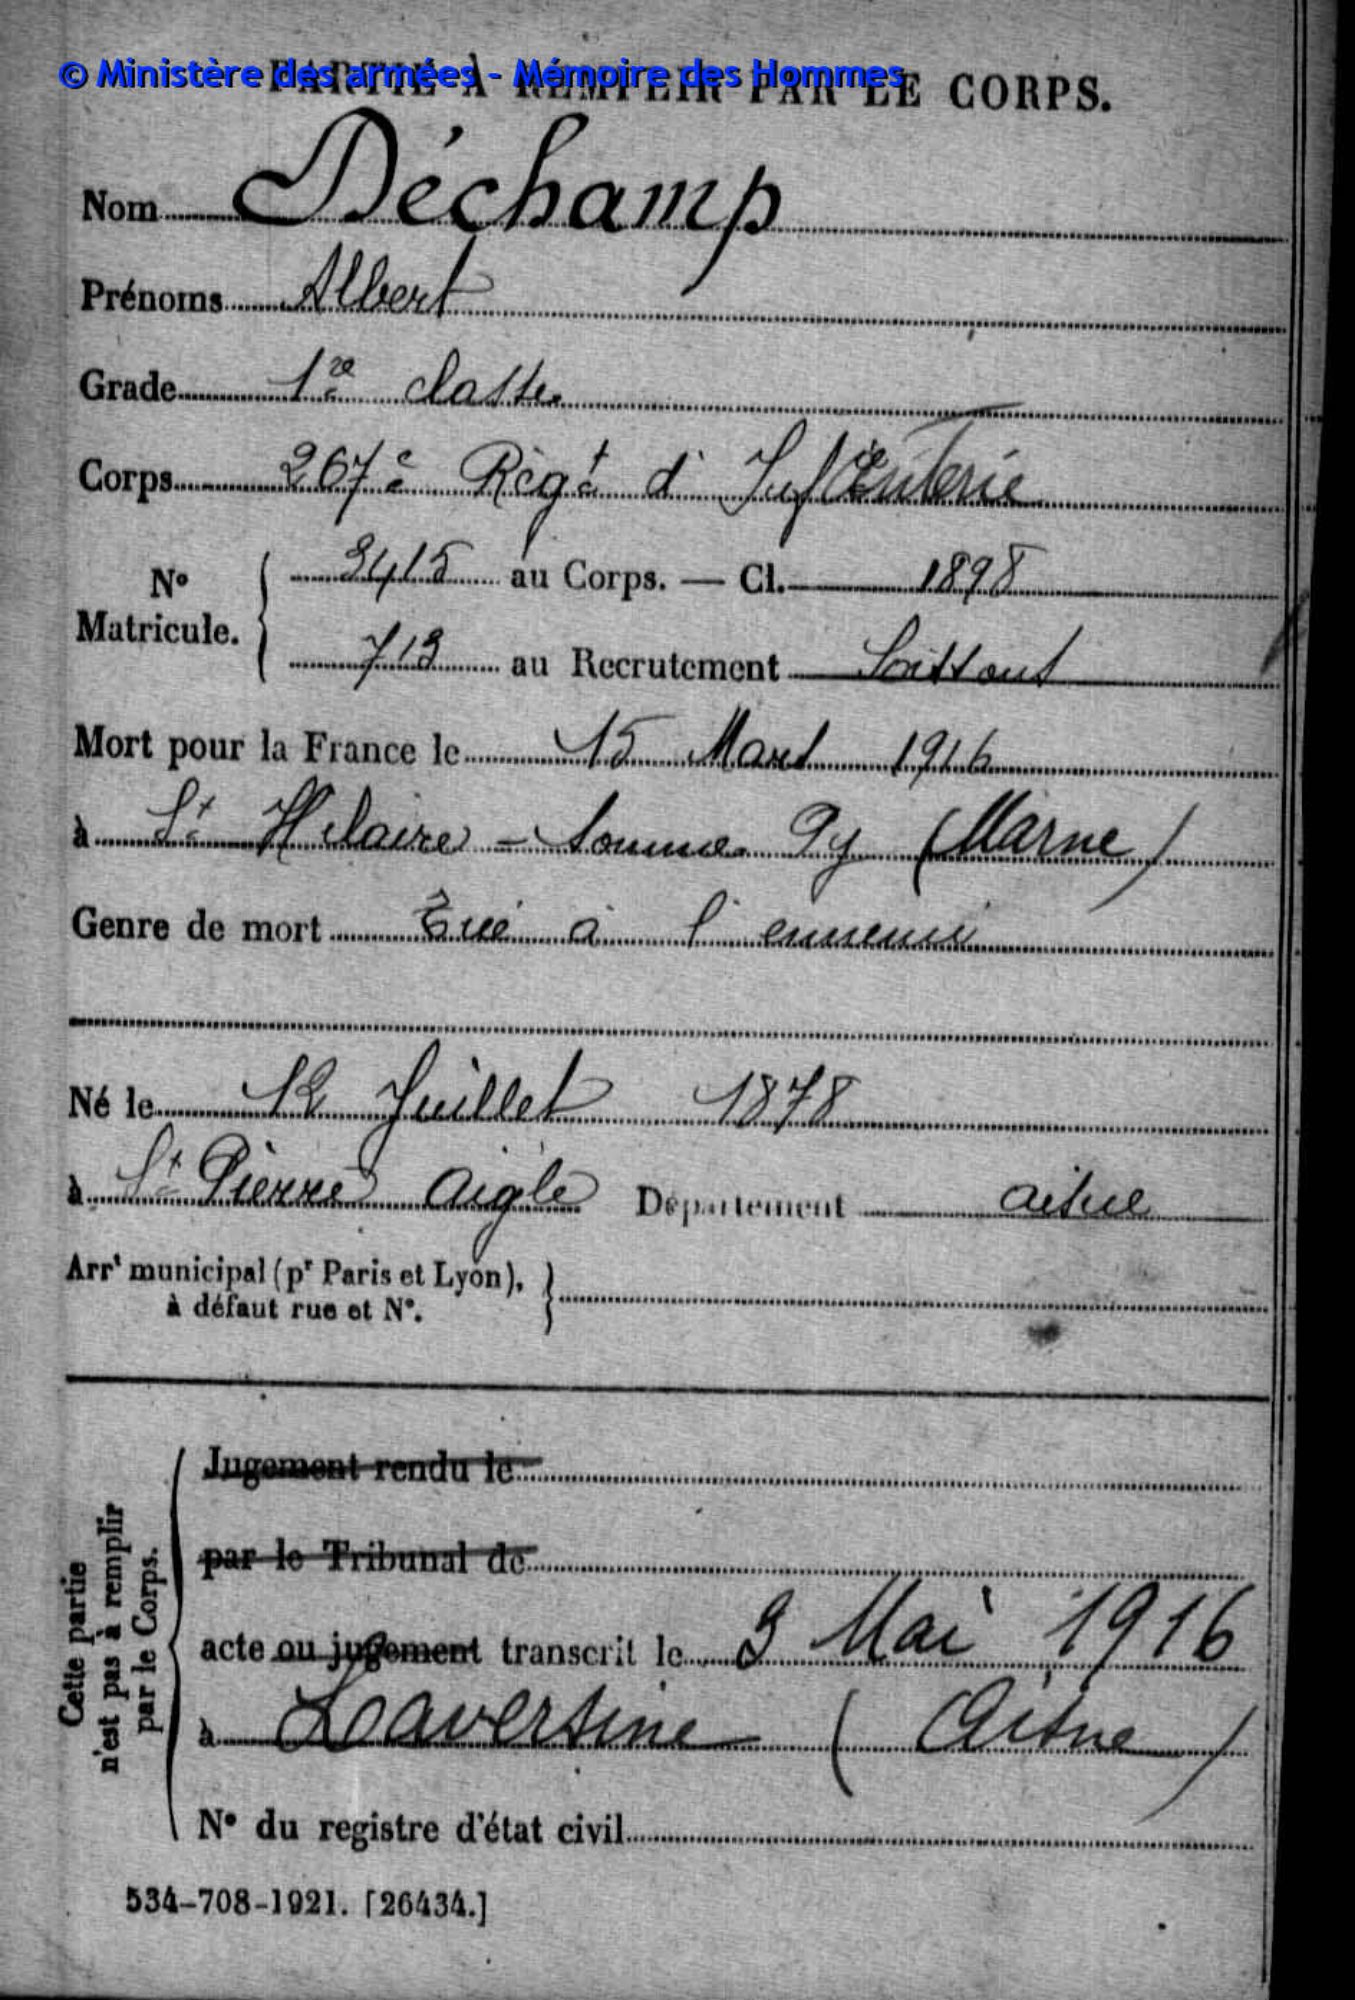 © Ministère des armées - Mémoire des Hommes
PARTIE À REMPLIR PAR LE CORPS.
Nom Déchamp
Prénoms Albert
Grade 1re classe
Corps 267e Régt d'Infanterie
No Matricule. 3415 au Corps. — Cl. 1898
713 au Recrutement Soissons
Mort pour la France le 15 Mars 1916
à St Hilaire - Somme Py (Marne)
Genre de mort Tué à l'ennemi
Né le 12 Juillet 1878
à St Pierre Aigle Département Aisne
Arrt municipal (pr Paris et Lyon),
à défaut rue et N°.
Cette partie
n'est pas à remplir
par le Corps.
Jugement rendu le
par le Tribunal de
acte ou jugement transcrit le 3 Mai 1916
à Laversine (Aisne)
N° du registre d'état civil
534-708-1921. [26434.]